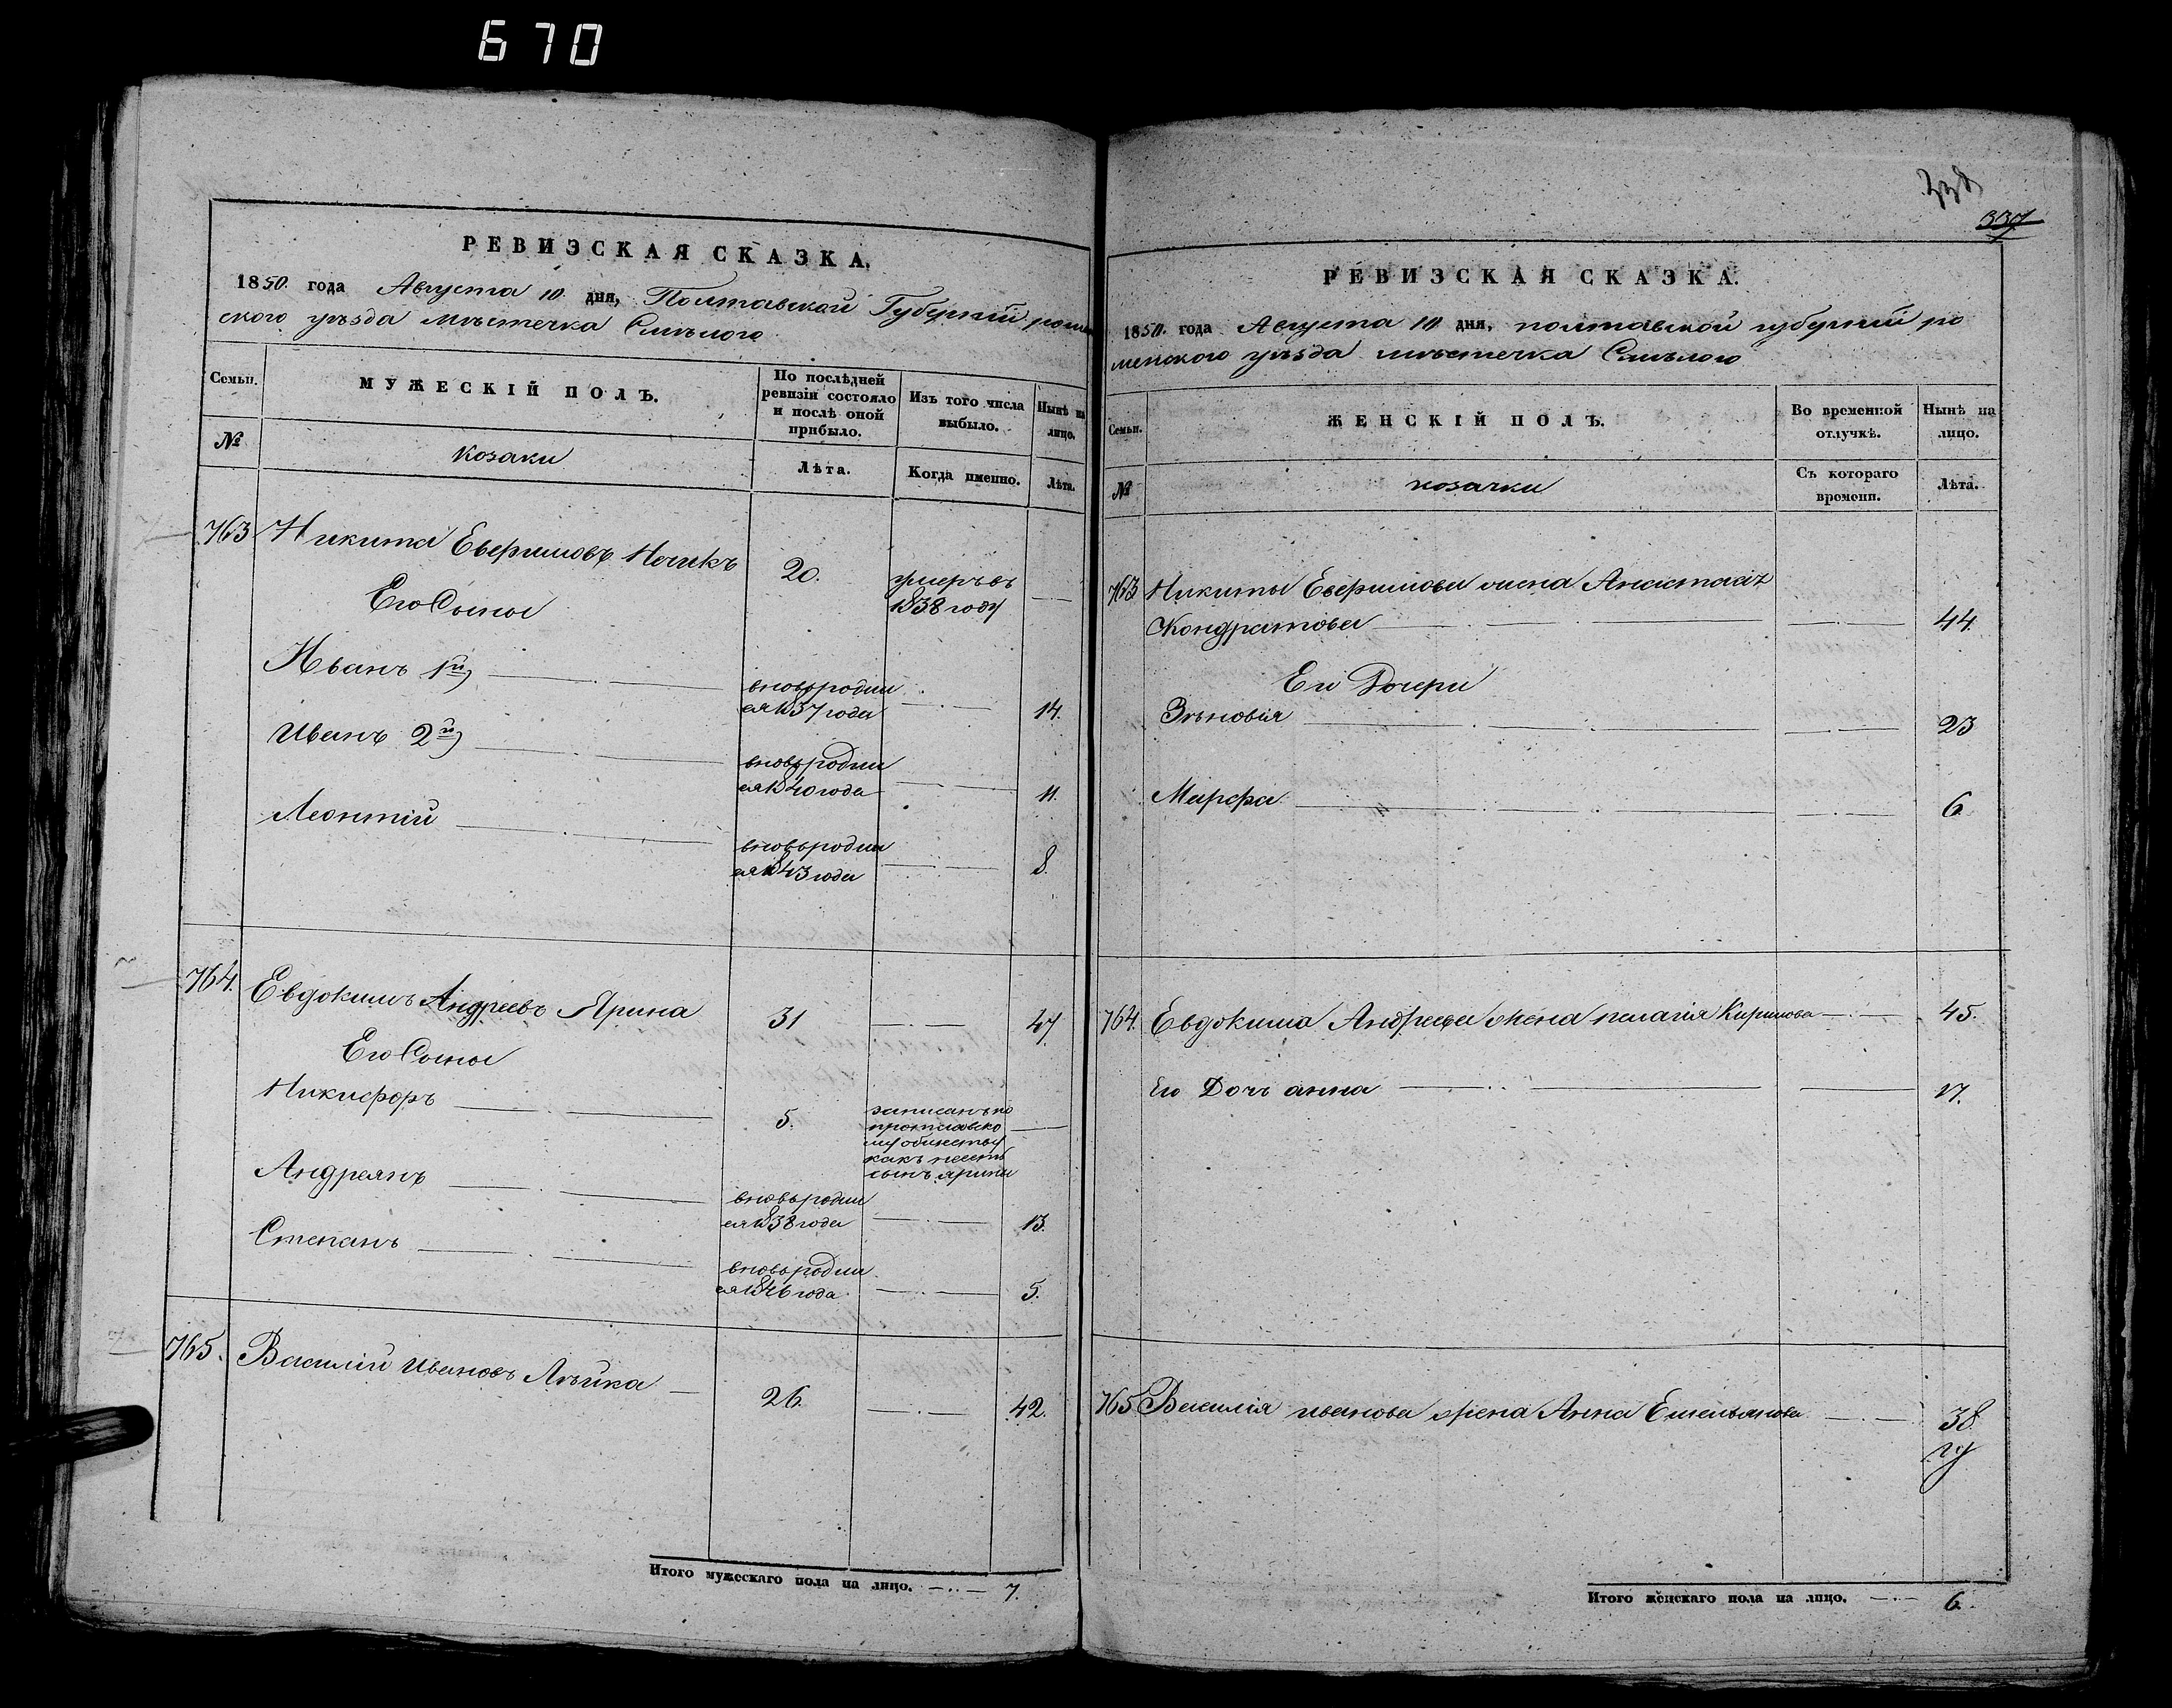 670
РЕВИЗСКАЯ СКАЗКА.
1850. года Августа 10 дня, Полтавской Губерніи ромен
ского уѣзда мѣстечка Смѣлого
Семьи.
МУЖЕСКІЙ ПОЛЪ.
По послѣдней ревизіи состояло и послѣ оной прибыло.
Изъ того числа выбыло.
Нынѣ на лицо.
№
Козаки
Лѣта.
Когда именно.
Лѣта.
763 Никита Евфимовъ Носикъ 20. умеръ въ
1838 году
Его Сыны
Иванъ 1й вновь родил
ся 1837 года 14.
Иванъ 2й вновь родил
ся 1840 года 11.
Леонтій вновь родил
ся 1843 года 8.
764. Евдокимъ Андреевъ Ярина 31 47
Его Сыны
Никифоръ 5. записанъ по
какъ
сынъ ярины
Андреянъ вновь родил
ся 1838 года 13.
Степанъ вновь родил
ся 1846 года 5.
765. Василій Ивановъ Лѣйка 26. 42.
Итого мужескаго пола на лицо. 7.
338
337
РЕВИЗСКАЯ СКАЗКА.
1850. года Августа 10 дня, полтавской губерніи ро
менского уѣзда мѣстечка Смѣлого
Семьи.
ЖЕНСКІЙ ПОЛЪ.
Во временной отлучкѣ.
Нынѣ на лицо.
№
козачки
Съ котораго времени.
Лѣта.
763 Никиты Евфимова жена Анастасія
Кондратова 44.
Его Дочери
Зѣновія 23
Марфа 6
764. Евдокима Андреева жена пелагія Кирилова 45.
Его Дочь анна 17.
765 Василія иванова жена Анна Емельянова 38.
Итого женскаго пола на лицо. 6.